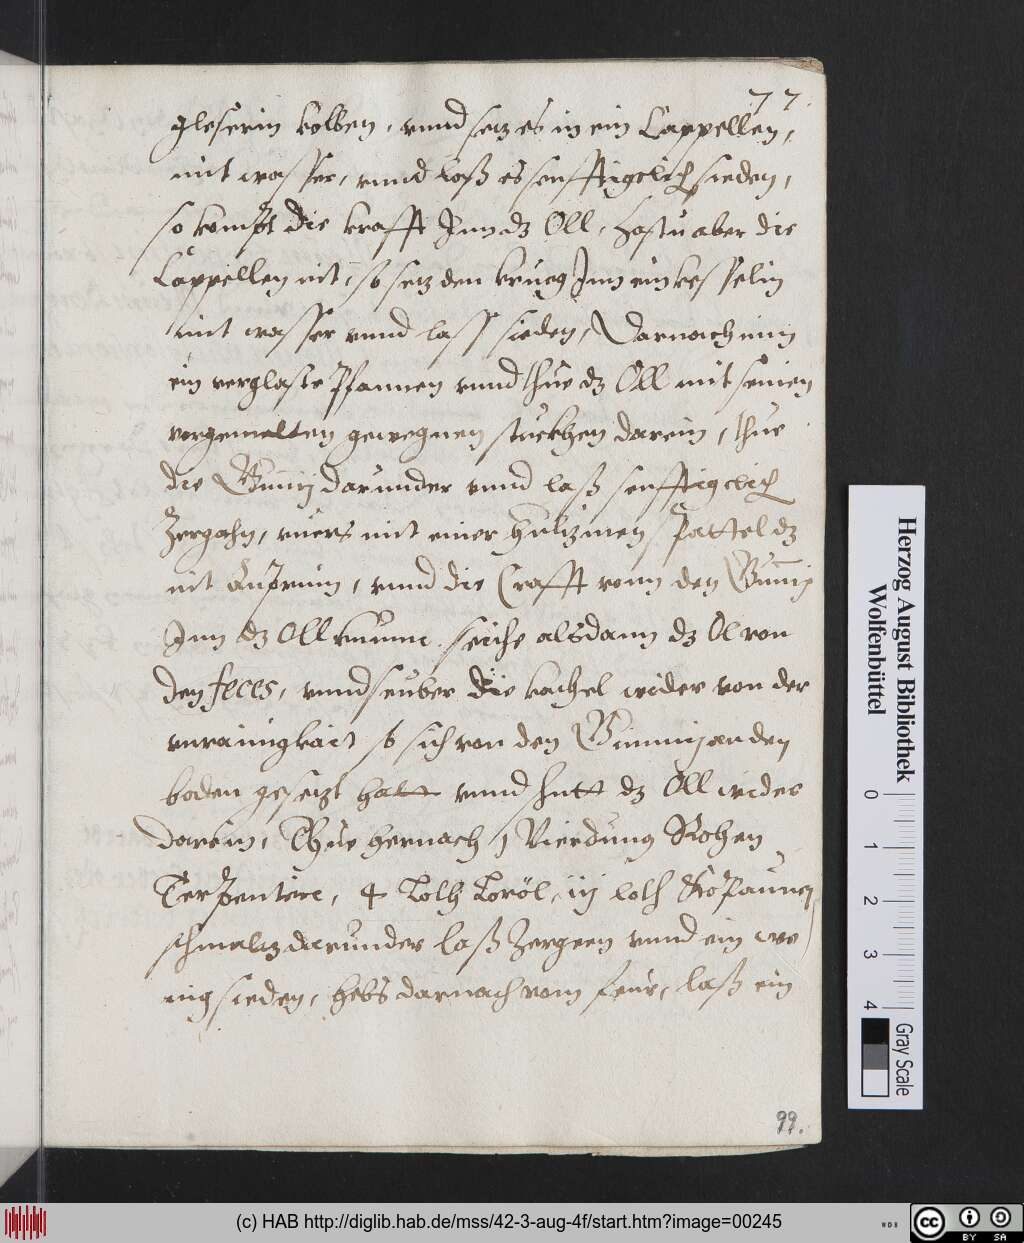 77.
gleserin kolben, vnnd setz es in ein Cappellen,
mit wasser, vnnd laß es senfftigclich sieden,
so kompt die krafft Inn dz Öll, hastu aber die
Cappellen nit, so setz den krueg Inn ein kesselin
mit wasser vnnd lass sieden, Darnach nim
ein verglaste Pfannen vnnd thue dz Öll mit seinen
vorgemelten gewegnen stuckhen darein, thue
die Gummj darunder vnnd laß senfftigclich
Zergohn, rüers mit einer hultzinen Spattel dz
nit Anprinn, vnnd die Crafft vonn den Gummj
Inn dz Öll kumme. seiche alsdann dz Öl von
den feces, vnnd seuber die kachel wider von der
vnrainigkait so sich von den Gummj an den
boden gesetzt hatt vnnd schutt dz Öll wider
darein, Thue hernach 1 Vierdung Rohen
Terpentin, 4 Loth Loröl, iij loth
schmaltz darunder laß Zergeen vnnd ein we
nig sieden, hebs darnach vom feur, laß ein
99.
Herzog August Bibliothek
Wolfenbüttel
0 1 2 3 4
Gray Scale
(c) HAB http://diglib.hab.de/mss/42-3-aug-4f/start.htm?image=00245
WDB
cc BY SA